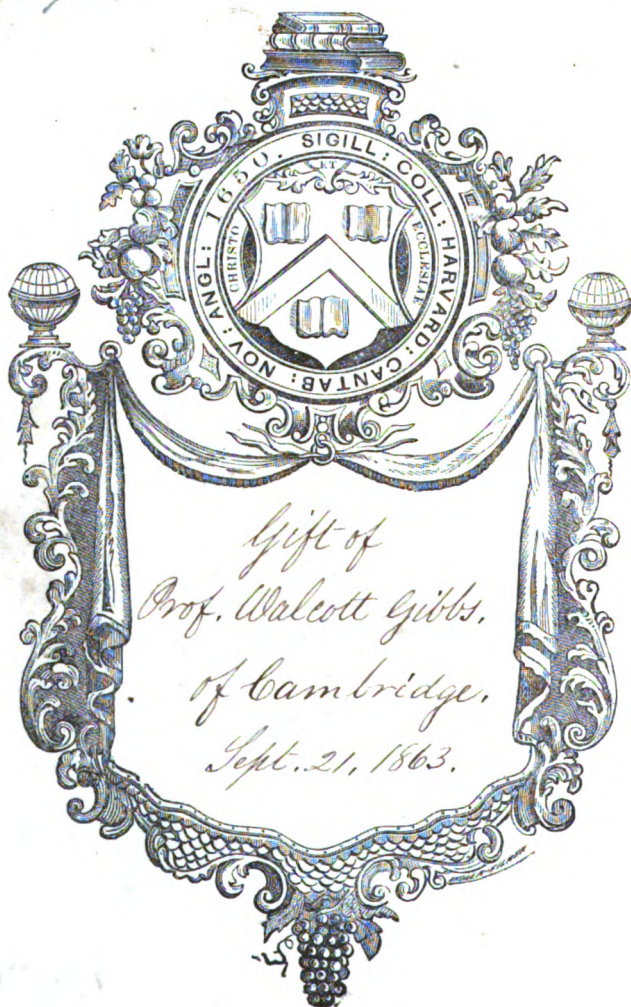 SIGILL: COLL: HARVARD: CANTAB: NOV: ANGL: 1650.
CHRISTO
ET
ECCLESIÆ
Gift of
Prof. Walcott Gibbs.
of Cambridge.
Sept. 21, 1863.